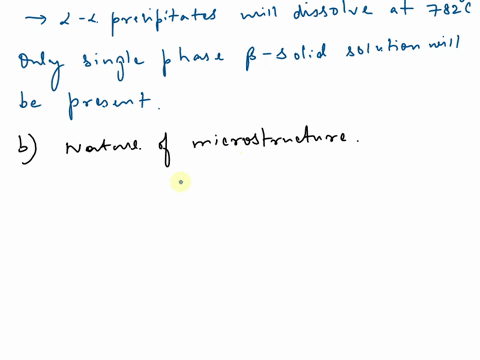 → α-α precipitates will dissolve at 782°C
Only single phase β-solid solution will
be present.
b) Nature of microstructure.